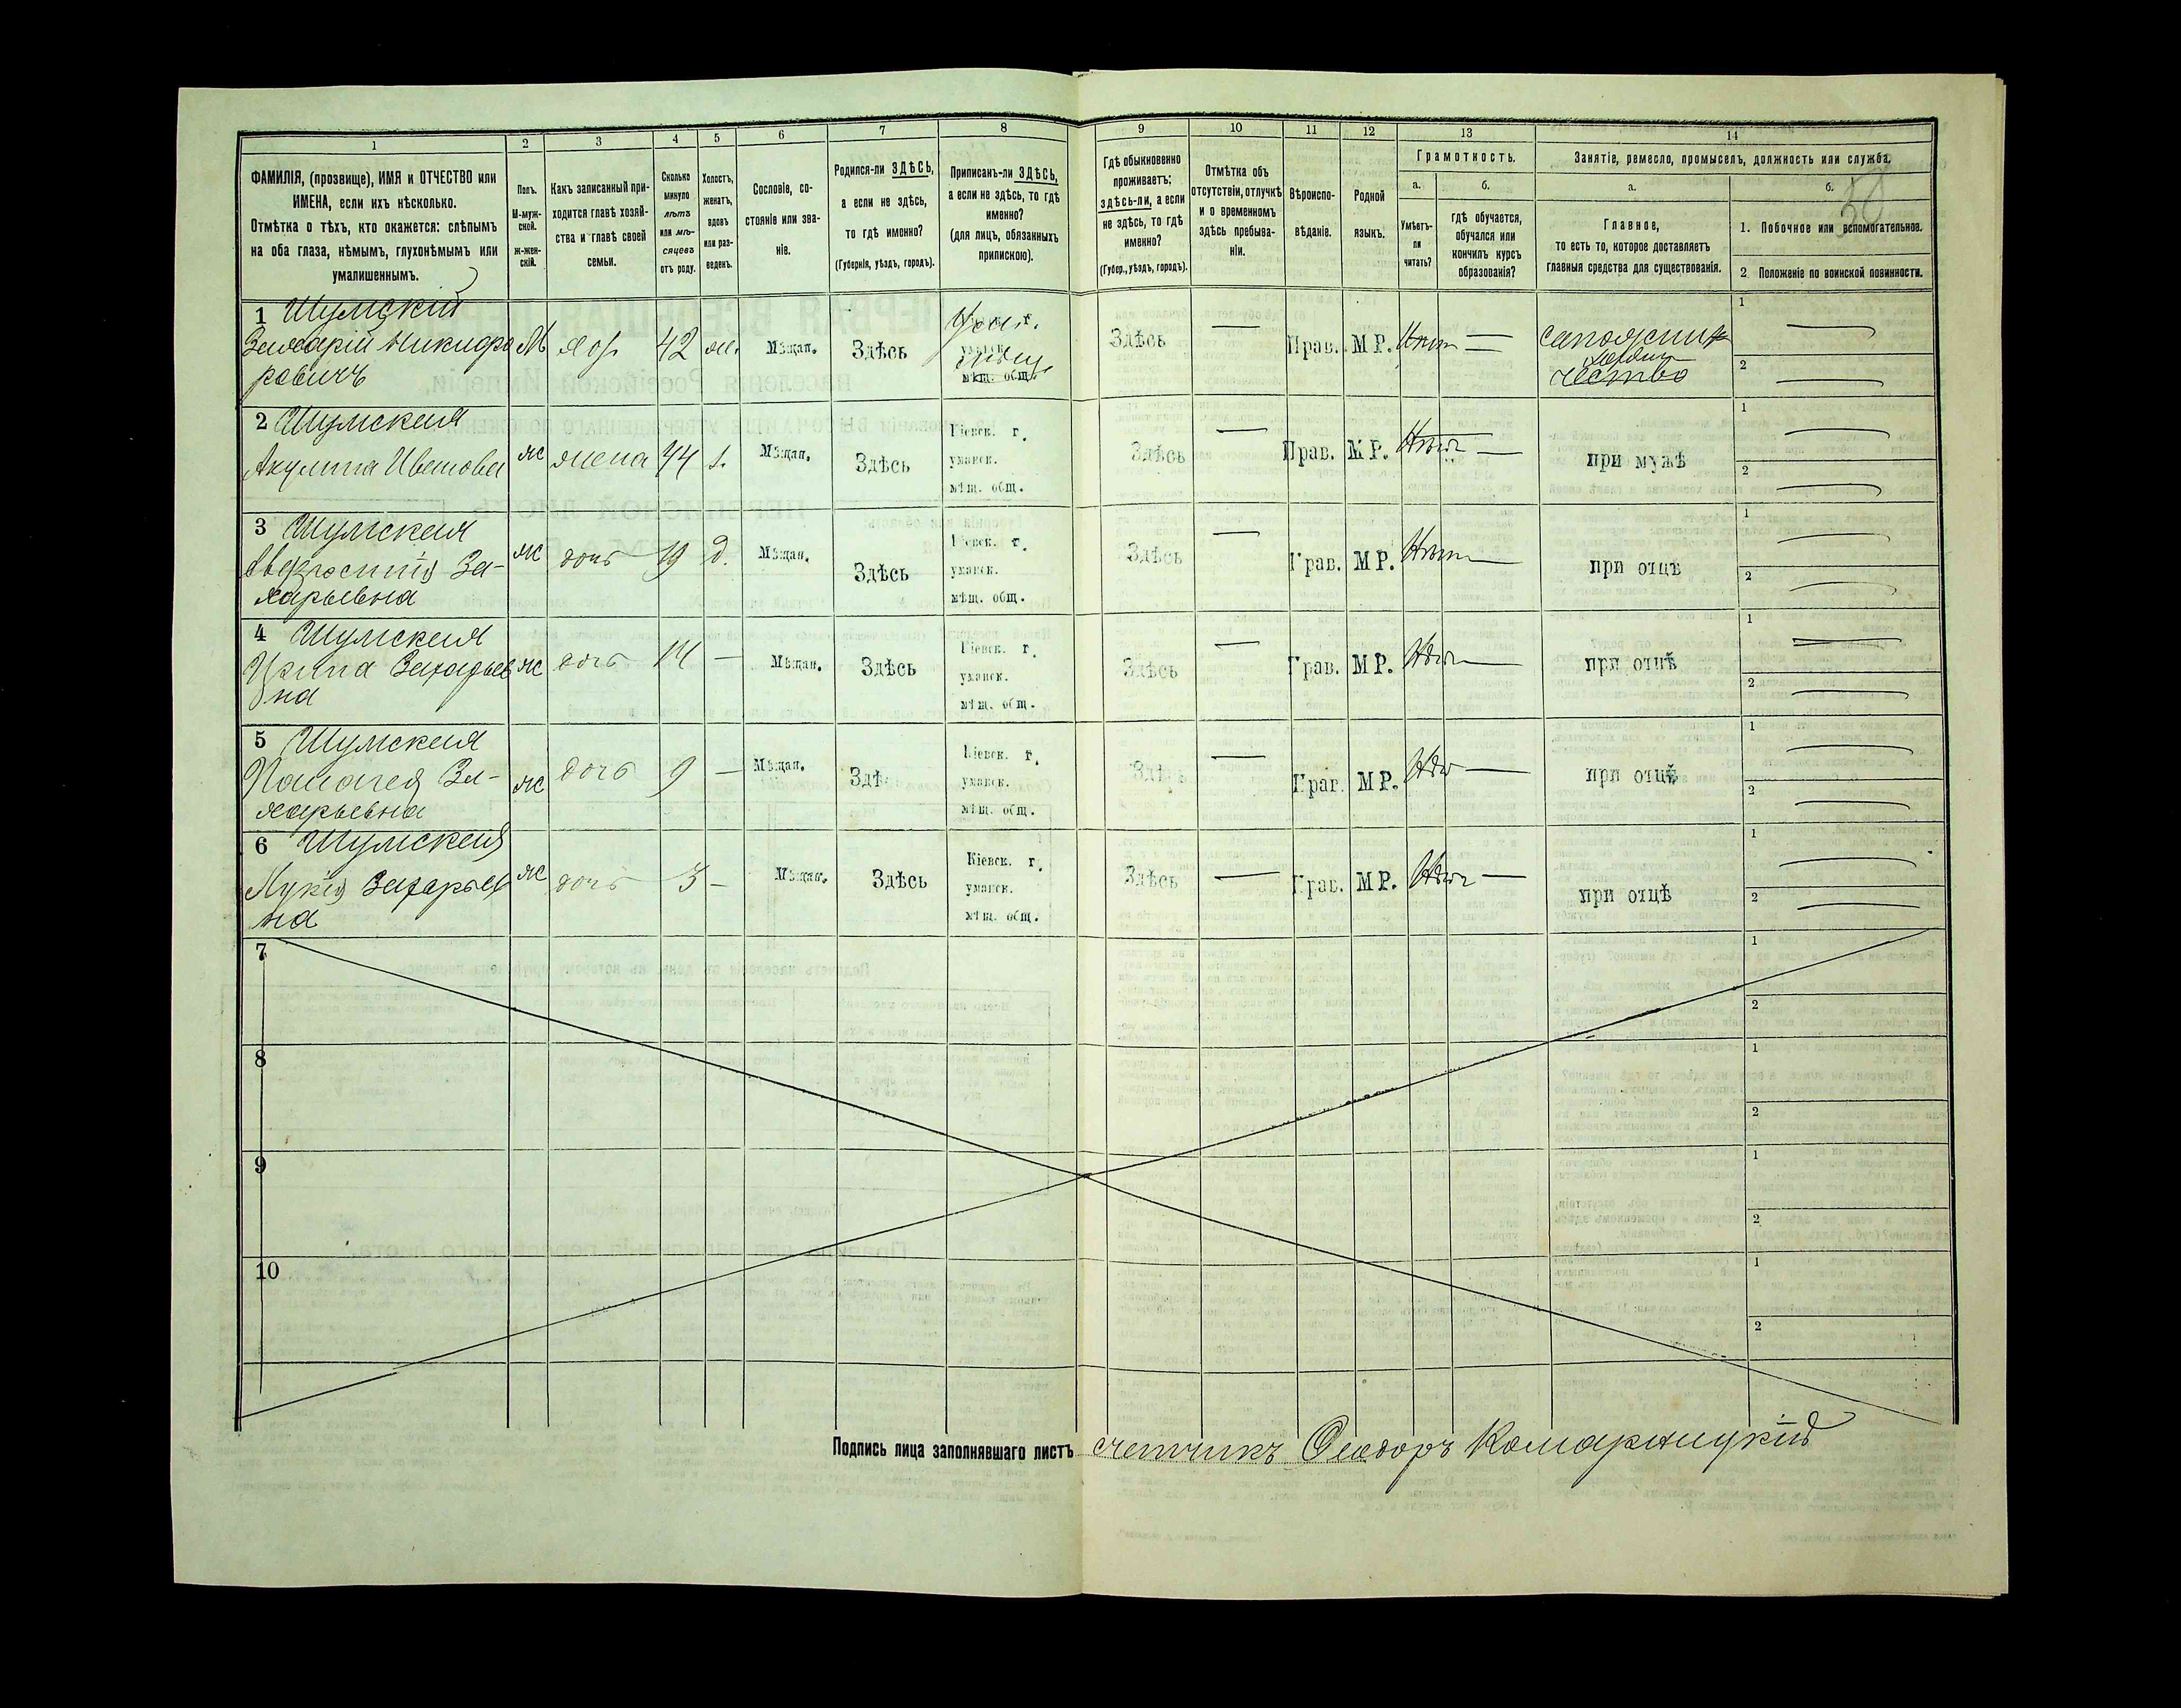 1 2 3 4 5 6 7 8 9 10 11 12 13 14
ФАМИЛІЯ, (прозвище), ИМЯ и ОТЧЕСТВО или
ИМЕНА, если ихъ нѣсколько.
Отмѣтка о тѣхъ, кто окажется: слѣпымъ
на оба глаза, нѣмымъ, глухонѣмымъ или
умалишеннымъ.
Полъ.
М-муж-
ской.
ж-жен-
скій.
Какъ записанный при-
ходится главѣ хозяй-
ства и главѣ своей
семьи.
Сколько
минуло
лѣтъ
или мѣ-
сяцевъ
отъ роду.
Холостъ,
женатъ,
вдовъ
или раз-
веденъ.
Сословіе, со-
стояніе или зва-
ніе.
Родился-ли ЗДѢСЬ,
а если не здѣсь,
то гдѣ именно?
(Губернія, уѣздъ, городъ).
Приписанъ-ли ЗДѢСЬ,
а если не здѣсь, то гдѣ
именно?
(для лицъ, обязанныхъ
припискою).
Гдѣ обыкновенно
проживаетъ:
здѣсь-ли, а если
не здѣсь, то гдѣ
именно?
(Губер., уѣздъ, городъ).
Отмѣтка объ
отсутствіи, отлучкѣ
и о временномъ
здѣсь пребыва-
ніи.
Вѣроиспо-
вѣданіе.
Родной
языкъ.
Грамотность.
а.
Умѣетъ-
ли
читать?
б.
гдѣ обучается,
обучался или
кончилъ курсъ
образованія?
Занятіе, ремесло, промыселъ, должность или служба.
а.
Главное,
то есть то, которое доставляетъ
главныя средства для существованія.
б.
1. Побочное или вспомогательное.
2. Положеніе по воинской повинности.
1 Шумскій
Захарій Никифо
ровичъ
М хоз. 42 ж. Мѣщан. Здѣсь
мѣщ. общ.
Здѣсь — Прав. М Р. —
1 —
2 —
2 Шумская
Акулина Иванова
ж жена 44 з. Мѣщан. Здѣсь
Кіевск. г.
уманск.
мѣщ. общ.
Здѣсь — Прав. М Р. Нѣтъ — при мужѣ
1 —
2 —
3 Шумская
Евфросинія За-
харьевна
ж дочь 19 д. Мѣщан. Здѣсь
Кіевск. г.
уманск.
мѣщ. общ.
Здѣсь — Прав. М Р. Нѣтъ — при отцѣ
1 —
2 —
4 Шумская
Захарьев
на
ж дочь 14 — Мѣщан. Здѣсь
Кіевск. г.
уманск.
мѣщ. общ.
Здѣсь — Прав. М Р. Нѣтъ — при отцѣ
1 —
2 —
5 Шумская
За-
харьевна
ж дочь 9 — Мѣщан. Здѣсь
Кіевск. г.
уманск.
мѣщ. общ.
Здѣсь — Прав. М Р. Нѣтъ — при отцѣ
1 —
2 —
6 Шумская
Лукія Захарьев
на
ж дочь — Мѣщан. Здѣсь
Кіевск. г.
уманск.
мѣщ. общ.
Здѣсь — Прав. М Р. Нѣтъ — при отцѣ
1 —
2 —
7
1
2
8
1
2
9
1
2
10
1
2
Подпись лица заполнявшаго листъ счетчикъ Ѳеодоръ Комарницкій